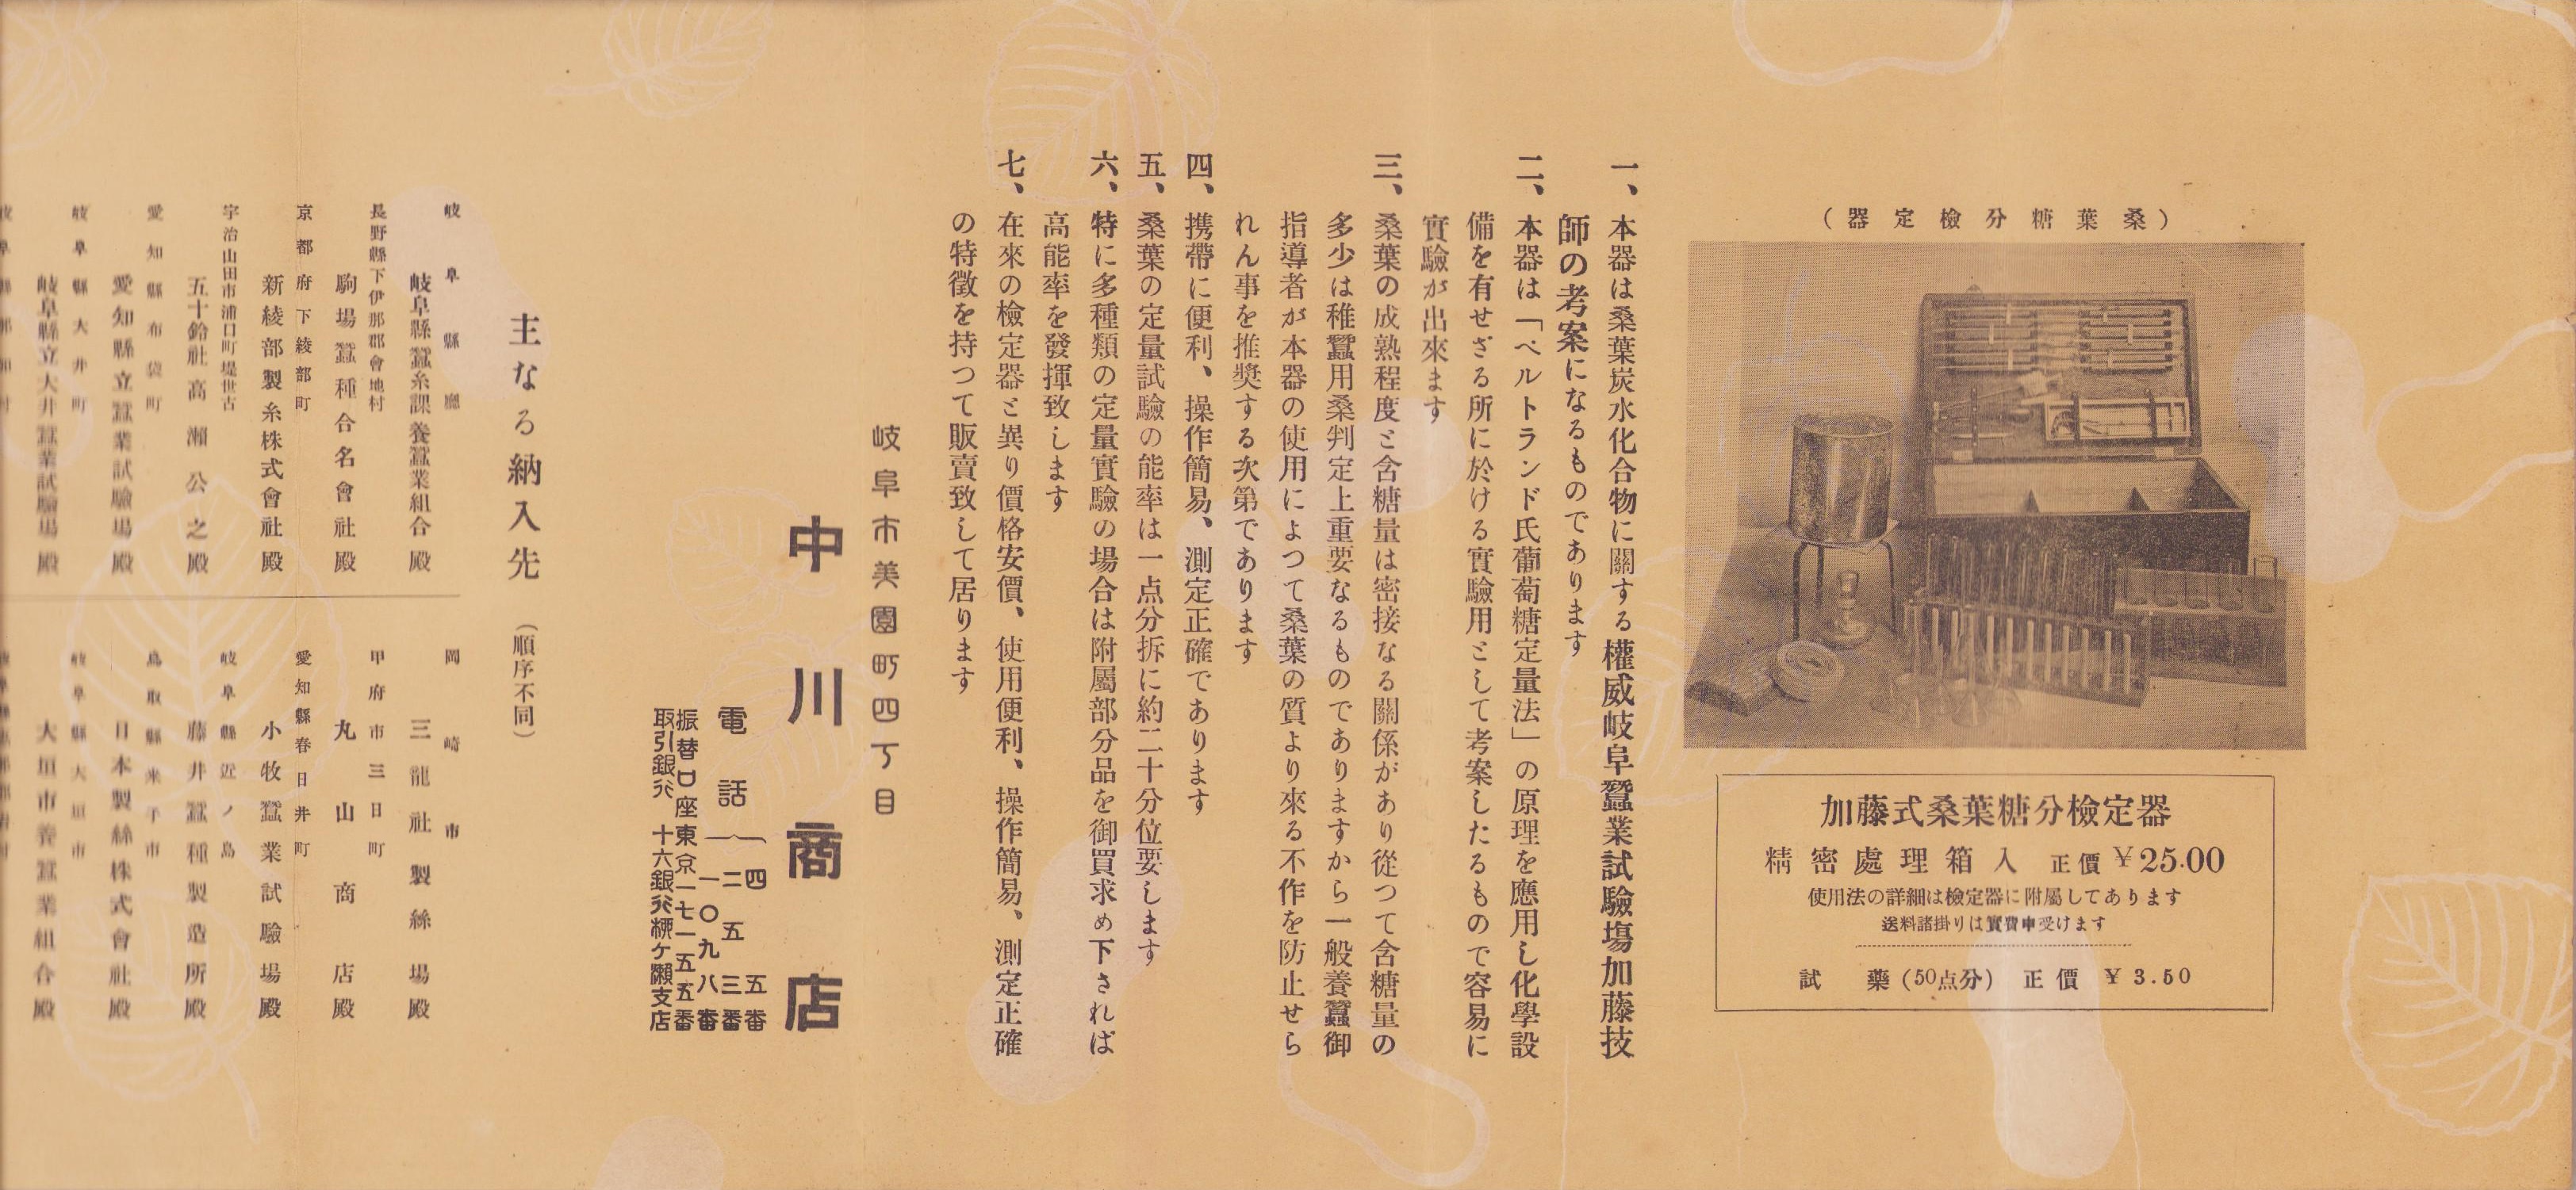 （器定檢分糖葉桑）
加藤式桑葉糖分檢定器
精密處理箱入 正價 ¥25.00
使用法の詳細は檢定器に附屬してあります
送料諸掛りは實費申受けます
試 藥（50点分） 正價 ¥3.50
一、本器は桑葉炭水化合物に關する權威岐阜蠶業試驗塲加藤技
師の考案になるものであります
二、本器は「ベルトランド氏葡萄糖定量法」の原理を應用し化學設
備を有せざる所に於ける實驗用として考案したるもので容易に
實驗が出來ます
三、桑葉の成熟程度と含糖量は密接なる關係があり從つて含糖量の
多少は稚蠶用桑判定上重要なるものでありますから一般養蠶御
指導者が本器の使用によつて桑葉の質より來る不作を防止せら
れん事を推奬する次第であります
四、携帶に便利、操作簡易、測定正確であります
五、桑葉の定量試驗の能率は一点分拆に約二十分位要します
六、特に多種類の定量實驗の場合は附屬部分品を御買求め下されば
高能率を發揮致します
七、在來の檢定器と異り價格安價、使用便利、操作簡易、測定正確
の特徴を持つて販賣致して居ります
岐阜市美園町四丁目
中川商店
電話（四五番
二五三番
一〇九八番
振替口座東京一七一五五番
取引銀行 十六銀行柳ケ瀬支店
主なる納入先（順序不同）
岐阜縣廳
岐阜縣蠶糸課養蠶業組合殿
長野縣下伊那郡會地村
駒場蠶種合名會社殿
京都府下綾部町
新綾部製糸株式會社殿
宇治山田市浦口町堤世古
五十鈴社高瀨公之殿
愛知縣布袋町
愛知縣立蠶業試驗場殿
岐阜縣大井町
岐阜縣立大井蠶業試驗場殿
岡崎市
三龍社製絲場殿
甲府市三日町
丸山商店殿
愛知縣春日井町
小牧蠶業試驗場殿
岐阜縣近ノ島
藤井蠶種製造所殿
鳥取縣米子市
日本製絲株式會社殿
岐阜縣大垣市
大垣市養蠶業組合殿